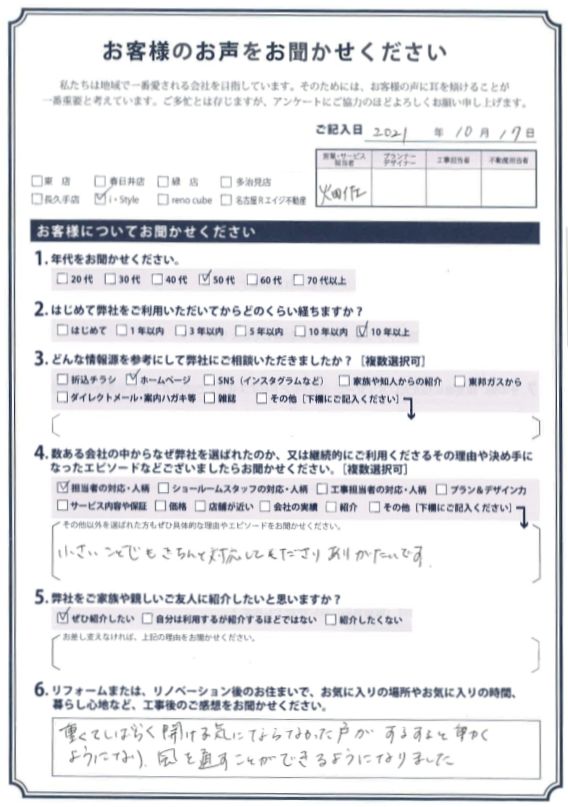 お客様のお声をお聞かせください
私たちは地域で一番愛される会社を目指しています。そのためには、お客様の声に耳を傾けることが
一番重要と考えています。ご多忙とは存じますが、アンケートにご協力のほどよろしくお願い申し上げます。
ご記入日 2021 年 10 月 17 日
営業・サービス担当者 プランナーデザイナー 工事担当者 不動産担当者
□東 店 □春日井店 □緑 店 □多治見店
□長久手店 ☑i・Style □reno cube □名古屋Rエイジ不動産
お客様についてお聞かせください
1. 年代をお聞かせください。
□20代 □30代 □40代 ☑50代 □60代 □70代以上
2. はじめて弊社をご利用いただいてからどのくらい経ちますか?
□はじめて □1年以内 □3年以内 □5年以内 □10年以内 ☑10年以上
3. どんな情報源を参考にして弊社にご相談いただきましたか?[複数選択可]
□折込チラシ ☑ホームページ □SNS(インスタグラムなど) □家族や知人からの紹介 □東邦ガスから
□ダイレクトメール・案内ハガキ等 □雑誌 □その他[下欄にご記入ください]
4. 数ある会社の中からなぜ弊社を選ばれたのか、又は継続的にご利用くださるその理由や決め手に
なったエピソードなどございましたらお聞かせください。[複数選択可]
☑担当者の対応・人柄 □ショールームスタッフの対応・人柄 □工事担当者の対応・人柄 □プラン&デザイン力
□サービス内容や保証 □価格 □店舗が近い □会社の実績 □紹介 □その他[下欄にご記入ください]
その他以外を選ばれた方もぜひ具体的な理由やエピソードをお聞かせください。
小さいことでもきちんと対応してくださりありがたいです.
5. 弊社をご家族や親しいご友人に紹介したいと思いますか?
☑ぜひ紹介したい □自分は利用するが紹介するほどではない □紹介したくない
お差し支えなければ、上記の理由をお聞かせください。
6. リフォームまたは、リノベーション後のお住まいで、お気に入りの場所やお気に入りの時間、
暮らし心地など、工事後のご感想をお聞かせください。
重くてしばらく開ける気にならなかった戸がするすると動く
ようになり、風を通すことができるようになりました